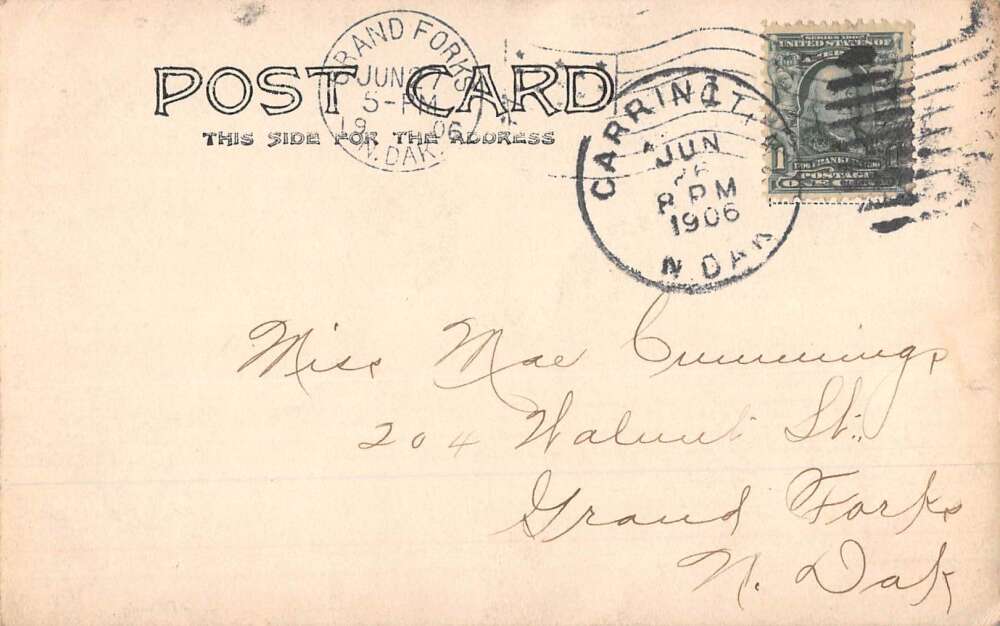 POST CARD
THIS SIDE FOR THE ADDRESS
GRAND FORKS
JUN 27
5-PM
1906
N. DAK.
CARRINGTON
JUN
26
8 PM
1906
N. DAK
SERIES 1902
UNITED STATES OF
AMERICA
1
1
POSTAGE
ONE
Miss Mae Cummings
204 Walnut St.
Grand Forks
N. Dak